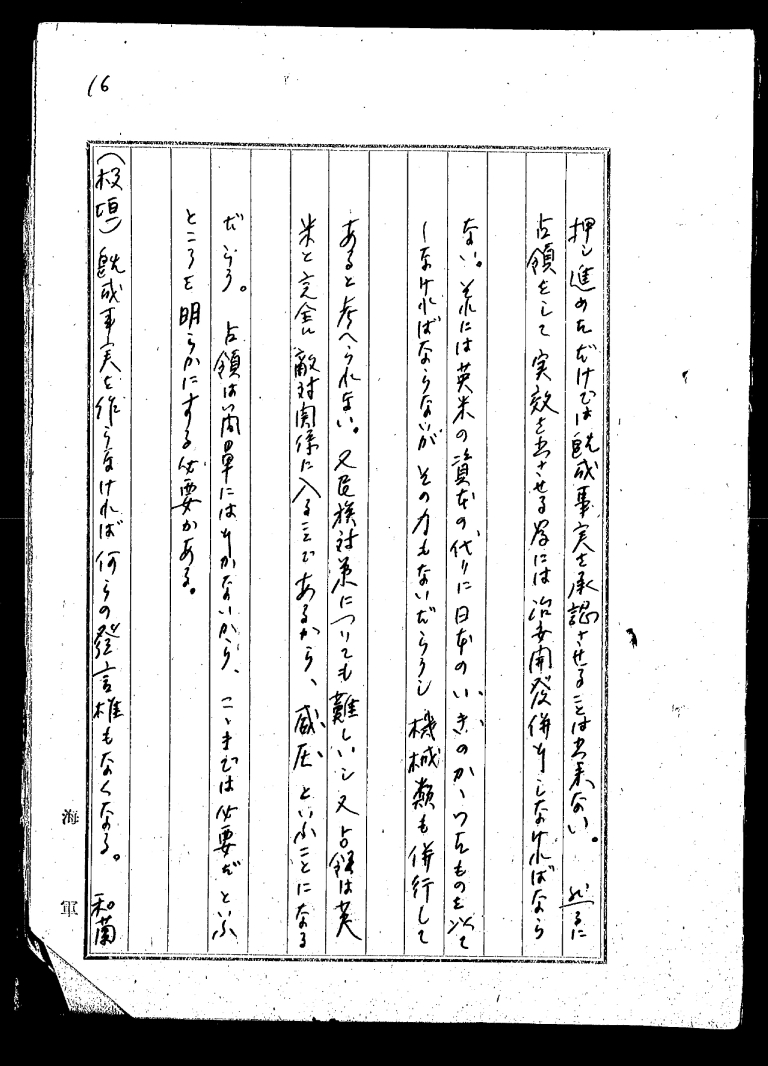 16
押し進めただけでは既成事実を承認させることは出来ない。然るに
占領をして実效を出させる為には治安開発併行しなければなら
ない。それには英米の資本の代りに日本のいきのかゝつたものを以て
しなければならないがその力もないだらうし機械類も併行して
あると考へられない。又民族対策についても難しいし又占領は英
米と完全に敵対関係に入ることであるから、威圧といふことになる
だらう。占領は簡単には行かないから、こゝまでは必要だといふ
ところを明らかにする必要がある。
(板垣)既成事実を作らなければ何らの発言権もなくなる。和蘭
海軍